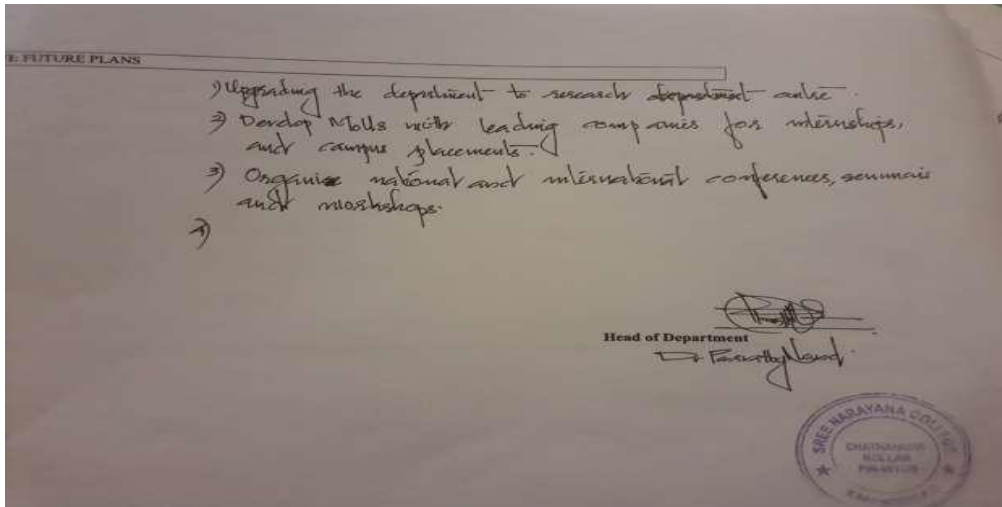 E: FUTURE PLANS
1) Upgrading the department to research department centre.
2) Develop MoUs with leading companies for internships,
and campus placements.
3) Organise national and international conferences, seminars
and workshops.
4)
Head of Department
Dr
SREE NARAYANA COLLEGE
CHATHANNUR
KOLLAM